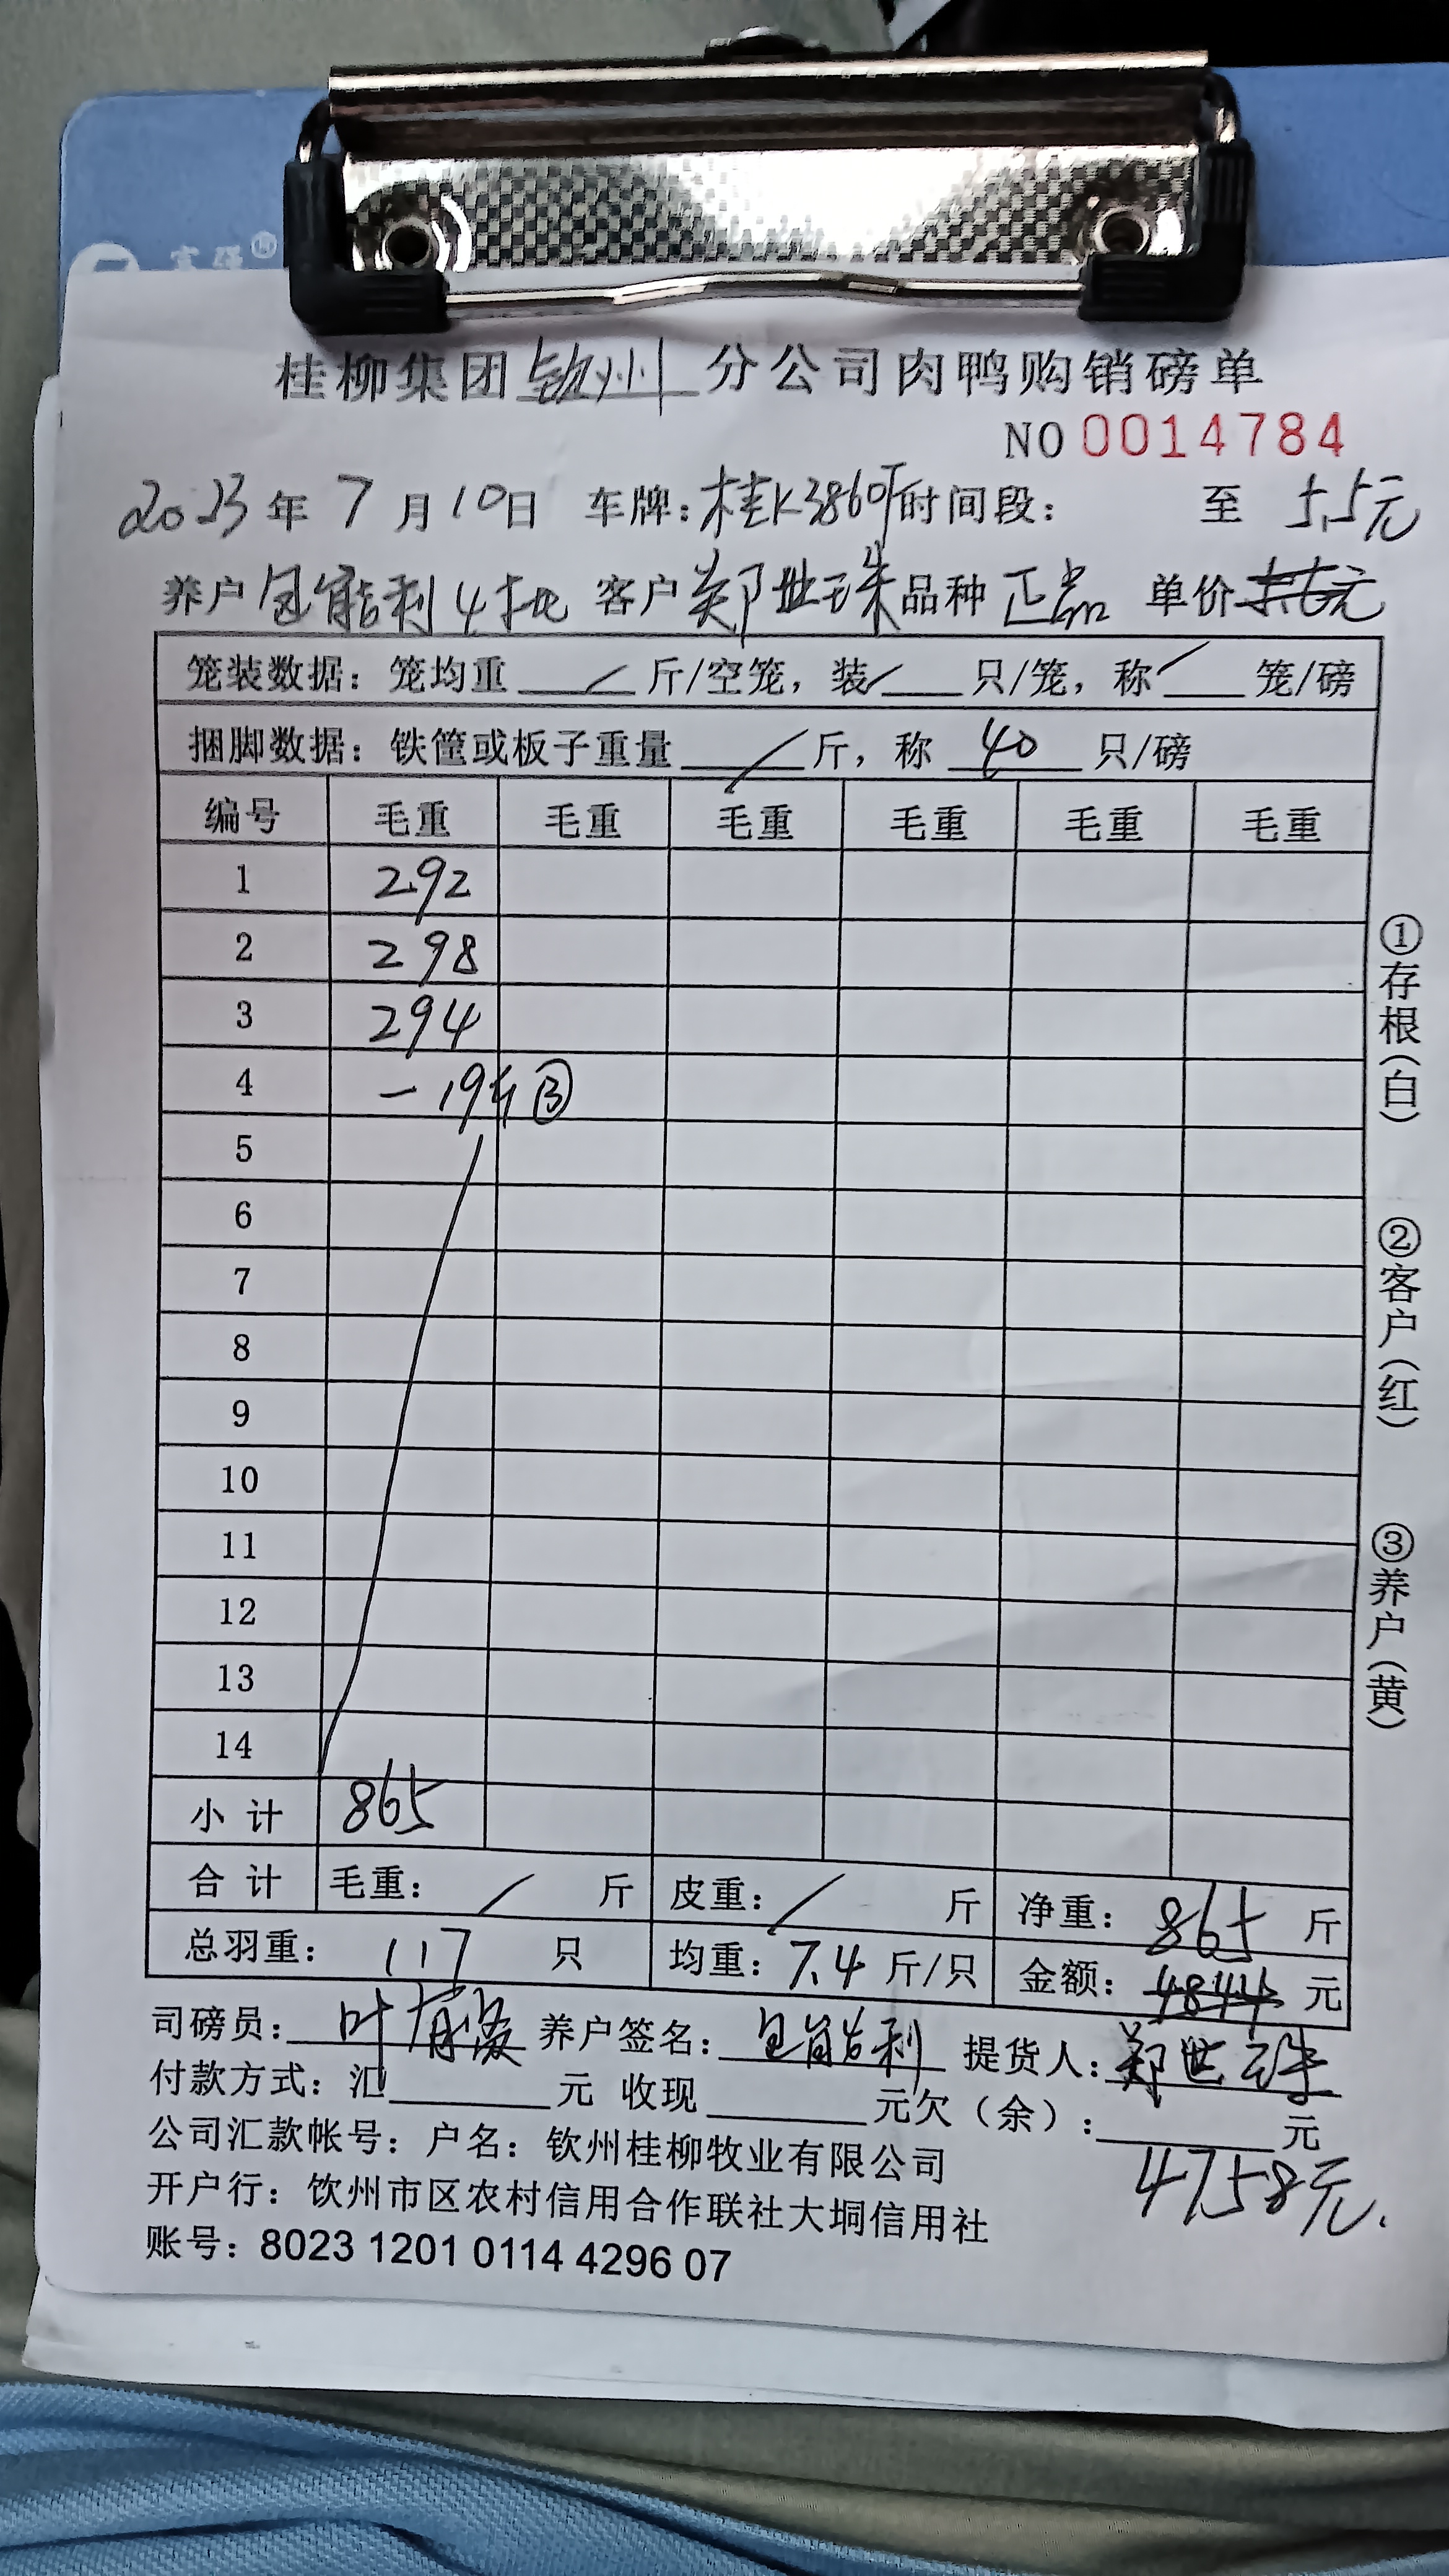 富强
桂柳集团钦州分公司肉鸭购销磅单
NO 0014784
2023年7月10日 车牌:桂K3860 时间段: 至 5.5元
养户 包能利4批 客户 郑世珠 品种 正品 单价
笼装数据: 笼均重 / 斤/空笼, 装 / 只/笼, 称 / 笼/磅
捆脚数据: 铁筐或板子重量 / 斤, 称 40 只/磅
编号 毛重 毛重 毛重 毛重 毛重 毛重
1 292
2 298
3 294
4 -19斤③
5
6
7
8
9
10
11
12
13
14
小计 865
合计 毛重: / 斤 皮重: / 斤 净重: 865 斤
总羽重: 117 只 均重: 7.4 斤/只 金额: 4844 元
司磅员: 叶 养户签名: 包能利 提货人: 郑世珠
付款方式: 汇 元 收现 元欠(余): 元
公司汇款帐号: 户名: 钦州桂柳牧业有限公司
4758元.
开户行: 钦州市区农村信用合作联社大垌信用社
账号: 8023 1201 0114 4296 07
①存根(白)
②客户(红)
③养户(黄)